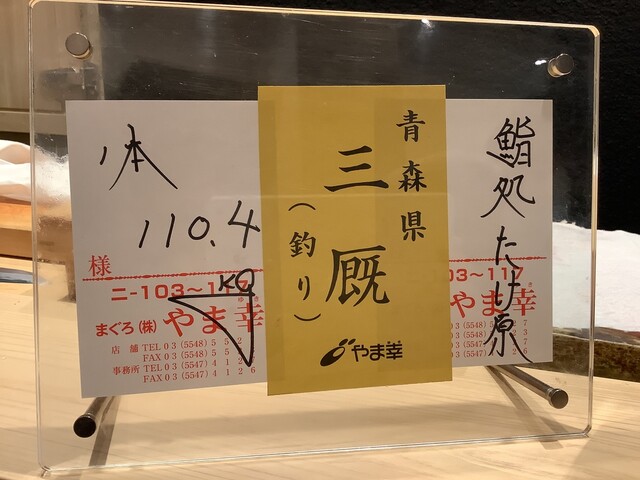 1本
110.4
kg
様
ニ-103〜117
まぐろ(株)やま幸
店舗 TEL03(5548)5
FAX03(5548)5
事務所 TEL03(5547)4126
FAX03(5547)4126
青森県
三厩
(釣り)
やま幸
鮨処 たけ原